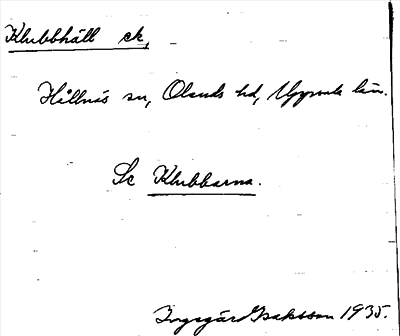 Klubbhäll ek,
Hållnäs sn, Olands hd, Uppsala län.
Se Klubbarna.
Ingegärd Isaksson 1935.